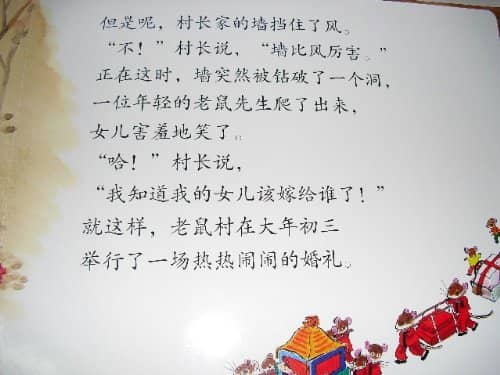 但是呢，村长家的墙挡住了风。
“不！”村长说，“墙比风厉害。”
正在这时，墙突然被钻破了一个洞，
一位年轻的老鼠先生爬了出来，
女儿害羞地笑了。
“哈！”村长说，
“我知道我的女儿该嫁给谁了！”
就这样，老鼠村在大年初三
举行了一场热热闹闹的婚礼。